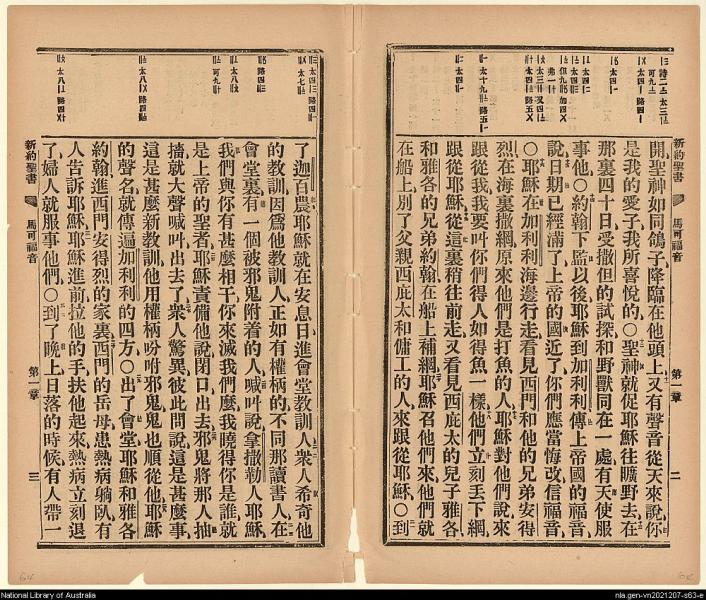 新約聖書 馬可福音 第一章 二
開、聖神如同鴿子、降臨在他頭上、又有聲音從天來說、你
是我的愛子、我所喜悅的。○聖神就促耶穌往曠野去、在
那裏四十日、受撒但的試探、和野獸同在一處、有天使服
事他。○約翰下監以後、耶穌到加利利、傳上帝國的福音、
說、日期已經滿了、上帝的國近了、你們應當悔改、信福音。
○耶穌在加利利海邊行走、看見西門和他的兄弟安得
烈、在海裏撒網、原來他們是打魚的人、耶穌對他們說、來
跟從我、我要叫你們得人如得魚一樣、他們立刻丟下網、
跟從耶穌、從這裏稍往前走、又看見西庇太的兒子雅各、
和雅各的兄弟約翰、在船上補網、耶穌召他們來、他們就
在船上別了父親西庇太和傭工的人、來跟從耶穌。○到
了迦百農、耶穌就在安息日進會堂教訓人、衆人希奇他
的教訓、因爲他教訓人、正如有權柄的、不同那讀書人、在
會堂裏、有一個被邪鬼附着的人、喊叫說、拿撒勒人耶穌、
我們與你有甚麼相干、你來滅我們麼、我曉得你是誰、就
是上帝的聖者、耶穌責備他說、閉口出去、邪鬼將那人抽
搐、就大聲喊叫出去了、衆人驚異、彼此問說、這是甚麼事、
這是甚麼新教訓、他用權柄吩咐邪鬼、鬼也順從他、耶穌
的聲名、就傳遍加利利的四方。○出了會堂、耶穌和雅各
約翰、進西門安得烈的家裏、西門的岳母患熱病躺臥、有
人告訴耶穌、耶穌進前拉他的手、扶他起來、熱病立刻退
了、婦人就服事他們。○到了晚上、日落的時候、有人帶一
新約聖書 馬可福音 第一章 三
National Library of Australia
nla.gen-vn2021207-s63-e